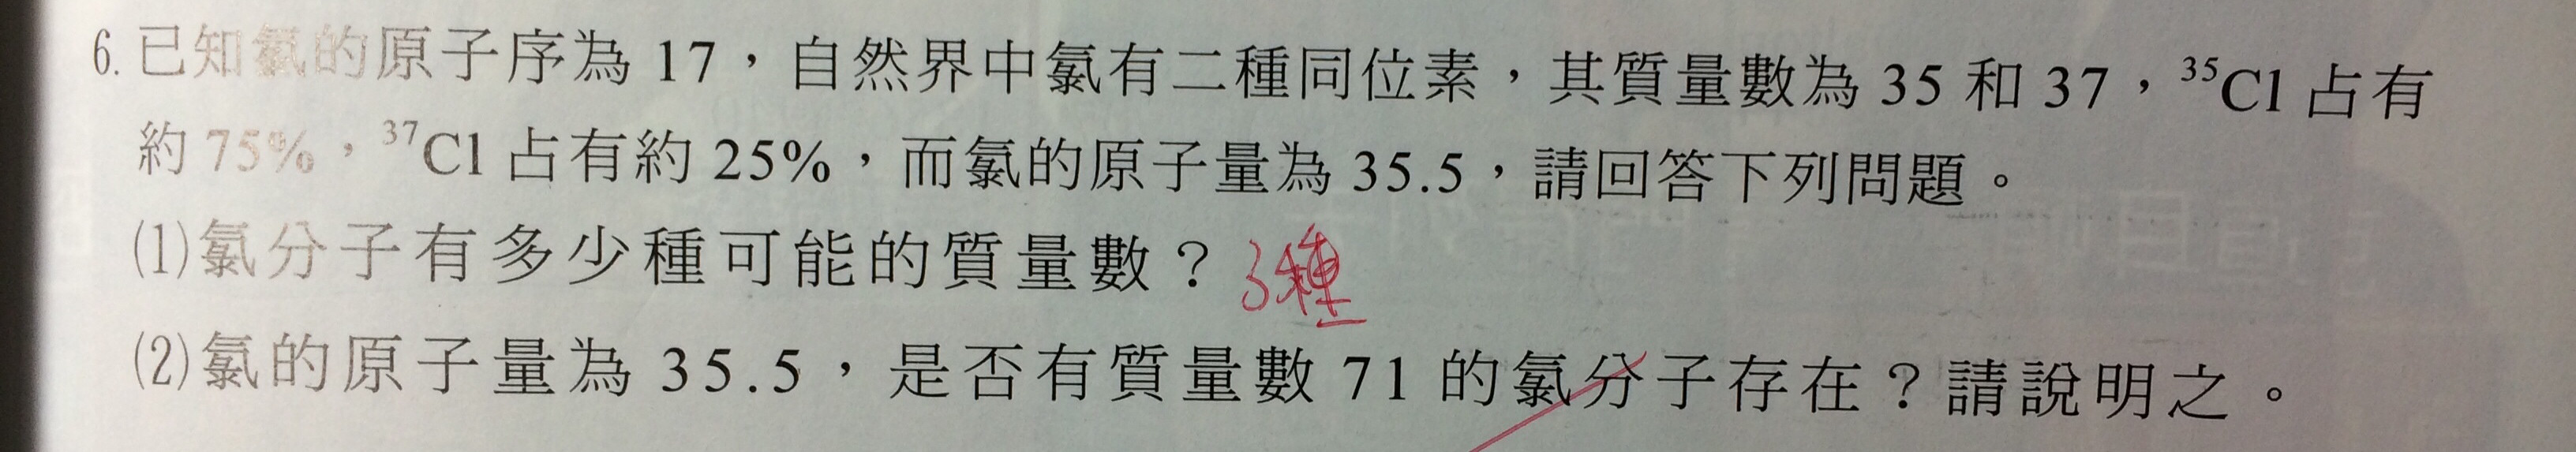 6.已知氯的原子序為 17，自然界中氯有二種同位素，其質量數為 35 和 37，³⁵Cl 占有
約 75%，³⁷Cl 占有約 25%，而氯的原子量為 35.5，請回答下列問題。
(1)氯分子有多少種可能的質量數？ 3種
(2)氯的原子量為 35.5，是否有質量數 71 的氯分子存在？請說明之。